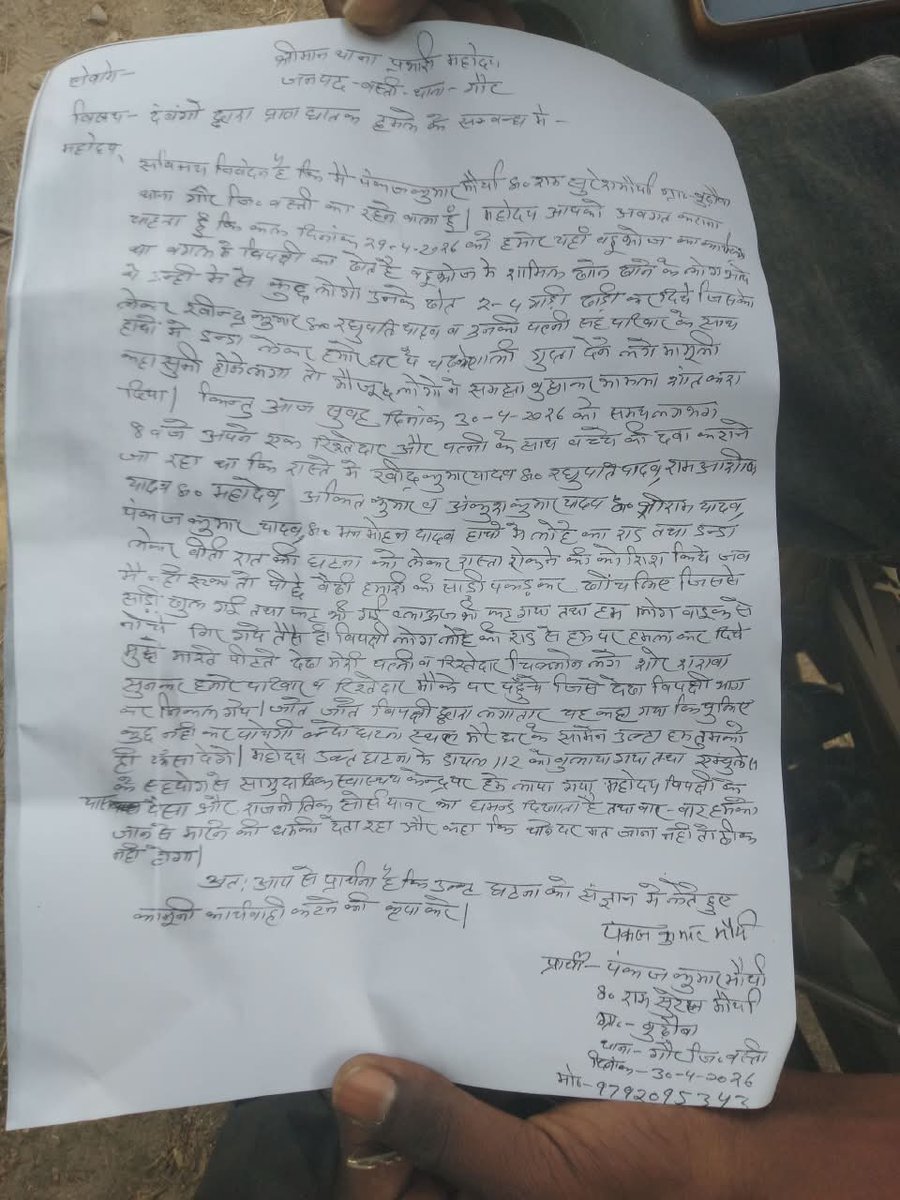 सेवा मे-
श्रीमान थाना प्रभारी महोदय
जनपद-बस्ती-थाना-गौर
विषय- दबंगो द्वारा प्राण घातक हमले के सम्बन्ध मे-
महोदय,
सविनय निवेदन है कि मै पंकज कुमार मौर्या S/o राम सुरेश मौर्या ग्रा०-
थाना गौर जि० बस्ती का रहने वाला हूँ। महोदय आपको अवगत कराना
चाहता हूँ कि कल दिनांक 29-4-2026 को हमारे यहाँ बहूभोज का कार्यक्रम
था बगल मे विपक्षी का खेत है बहूभोज मे शामिल होने के लोग आये
थे उन्ही मे से कुछ लोगो उनके खेत 2-4 गाड़ी खड़ी कर दिये जिसको
लेकर रवीन्द्र कुमार S/o रघुपति यादव व उनकी पत्नी सह परिवार के साथ
हाथो मे डन्डा लेकर हमारे घर पे चढके गाली गुप्ता देने लगे मामूली
कहा सुनी होने लगा तो मौजूद लोगो ने समझा बुझाकर मामला शांत करा
दिया। किन्तु आज सुबह दिनांक 30-4-2026 को समय लगभग
8 बजे अपने एक रिश्तेदार और पत्नी के साथ बच्चे की दवा कराने
जा रहा था कि रास्ते मे रवीन्द्र कुमार यादव S/o रघुपति यादव, राम आशीष
यादव S/o महादेव, अंकित कुमार व अंकुश कुमार यादव S/o श्रीराम यादव,
पंकज कुमार यादव, S/o मनमोहन यादव हाथो मे लोहे का राड तथा डन्डा
लेकर बीती रात की घटना को लेकर रास्ता रोकने की कोशिश किये जब
मै नही रूका तो पीछे बैठी हमारी की साड़ी पकड़कर खींच लिए जिससे
साड़ी खुल गई तथा फट भी गई ब्लाऊज भी फट गया तथा हम लोग बाइक से
नीचे गिर गये तैसे ही विपक्षी लोग लोहे की राड से हम पर हमला कर दिये
मुझे मारते पीटते देख मेरी पत्नी व रिश्तेदार चिल्लाने लगे शोर शराबा
सुनकर हमारे परिवार व रिश्तेदार मौके पर पहुँचे जिसे देख विपक्षी भाग
कर निकल गये। जाते जाते विपक्षी द्वारा लगातार यह कहा गया कि पुलिस
कुछ नही कर पायेगी घटना स्थल मेरे घर के सामने उल्टा हम तुमको
ही फँसा देगे। महोदय उक्त घटना के डायल 112 को बुलाया गया तथा एम्बुलेंस
के सहयोग से सामुदायिक स्वास्थ्य केन्द्र पर हमे लाया गया महोदय विपक्षी के
पास पैसा और राजनीतिक सोर्स पावर का घमन्ड दिखाता है तथा बार-बार हमको
जान से मारने की धमकी देता रहा और कहा कि थाने पर मत जाना नही तो ठीक
नही होगा।
अत: आप से प्रार्थना है कि उक्त घटना को संज्ञान मे लेते हुए
कानूनी कार्यवाही करने की कृपा करे।
पंकज कुमार मौर्य
प्रार्थी- पंकज कुमार मौर्या
S/o राम सुरेश मौर्या
ग्रा०-
थाना-गौर जि० बस्ती
दिनांक-30-4-2026
मो०-9792095343